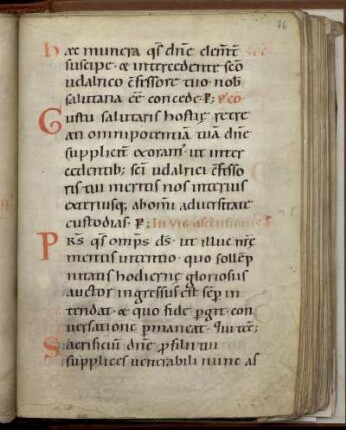 76
Hæc munera qs̄ dn̄e clem̄t
suscipe. & intercedente sc̄o
udalrico c̄fessore tuo nob̄
salutaria eē concede. P; 
Gustu salutaris hostię recre
ati omnipotentiā tuā dn̄e
supplicit̄ exoram' ut inter
cedentib; sc̄i udalrici c̄fesso
ris tui meritis nos interius
exteriusq; ab omi aduersitate
custodias. P; In vig ascensionis
PRS qs̄ omp̄s ds̄. ut illuc nr̄ę
mentis intentio. quo sollēp
nitatis hodiernę gloriosus
auctor ingressus est semp̄ in
tendat. & quo fide pgit. con
uersatione pmaneat. 
Sacrificiū dn̄e p filii tui
supplices uenerabili nunc as